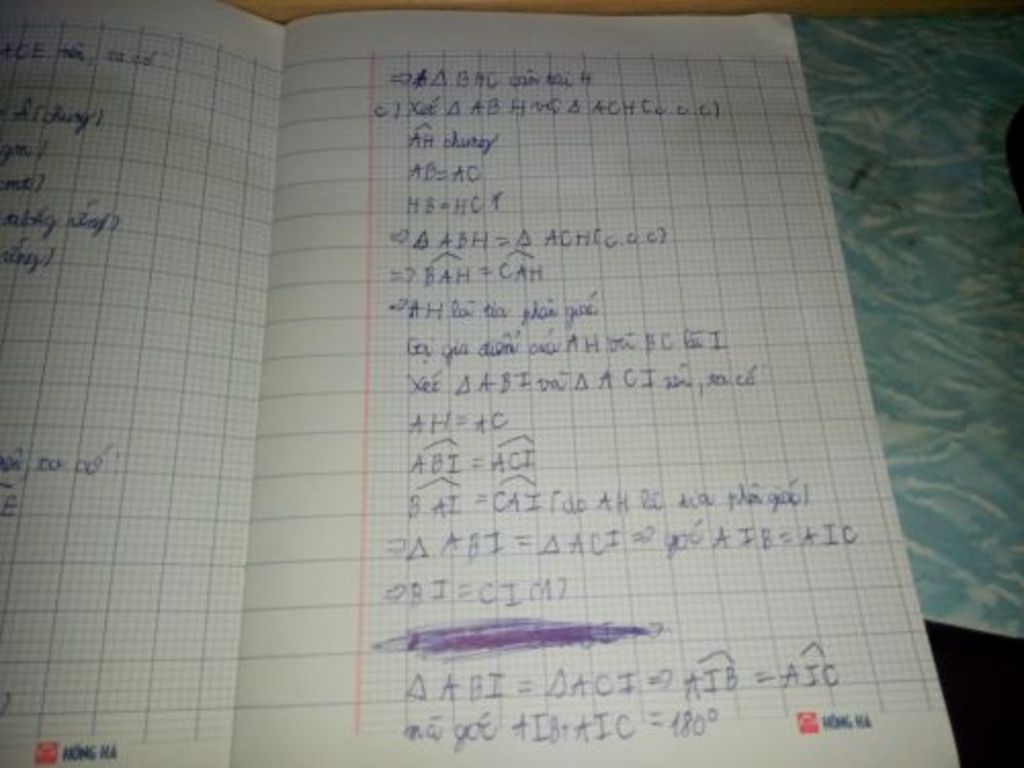 ACE nên, ta có
Â (chung)
gm)
cmt)
tương ứng)
ứng)
ta có:
E
HỒNG HÀ
=> Δ BHC cân tại H
c) Xét Δ ABH và Δ ACH (c.c.c)
AH chung
AB = AC
HB = HC
=> Δ ABH = Δ ACH (c.c.c)
=> BAH = CAH
=> AH là tia phân giác
Gọi giao điểm của AH và BC là I
Xét Δ ABI và Δ ACI, ta có
AH = AC
ABI = ACI
BAI = CAI (do AH là tia phân giác)
=> Δ ABI = Δ ACI => góc AIB = AIC
=> BI = CI (1)
Δ ABI = Δ ACI => AIB = AIC
mà góc AIB + AIC = 180°
HỒNG HÀ